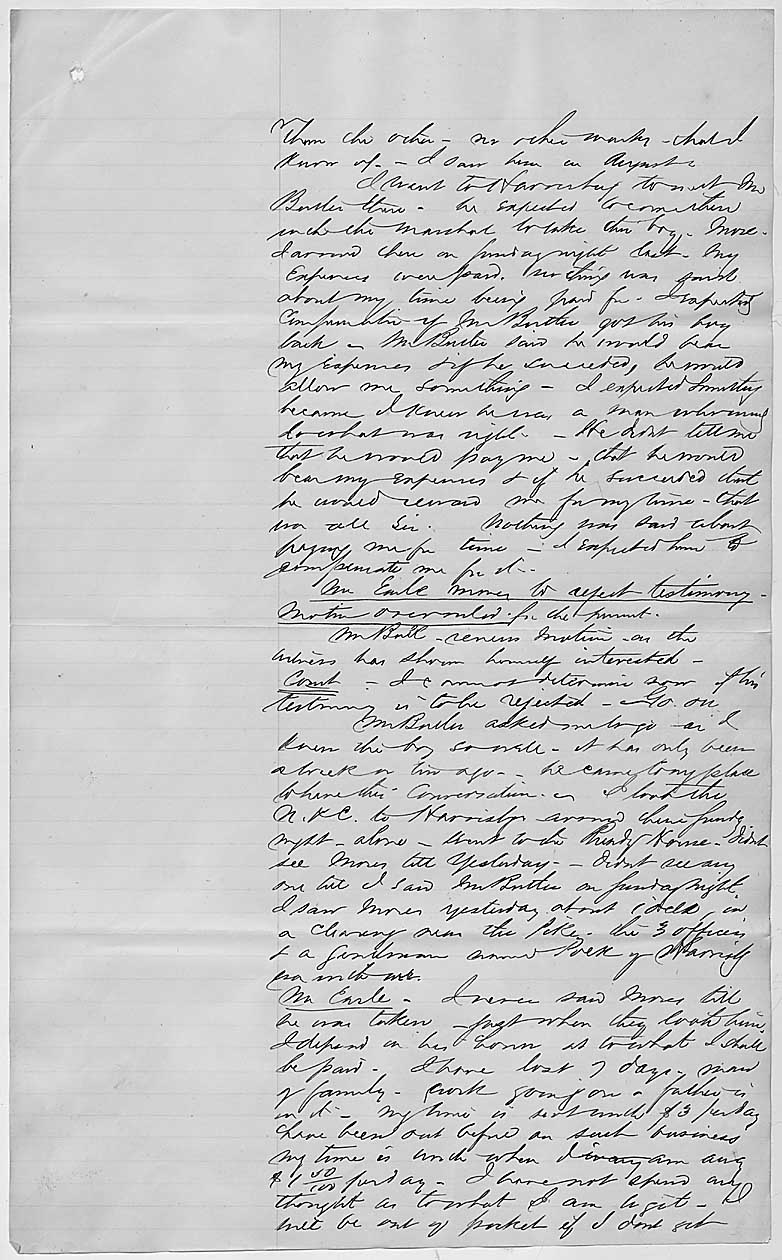 Than the other - no other marks - that I
know of. - I saw him in August.
I went to Harrisburg to meet Mr
Butler there - he expected to come then
with the Marshal to take this boy - Moses -
I arrived there on Sunday night last - My
Expenses were paid. nothing was said
about my time being paid for - I expected
Compensation if Mr Butler got his boy
back - Mr Butler said he would bear
my Expenses & if he succeeded, he would
allow me something - I expected something
because I knew he was a man who would
do what was right - - He didnt tell me
that he would pay me - that he would
bear my expenses & if he succeeded that
he would reward me for my time - that
was all Sir. Nothing was said about
paying me for time - I expected him to
compensate me for it -
Mr Earle moves to reject testimony -
Motion overruled for the present.
Mr Bull - renews Motion - as the
witness has shown himself interested -
Court - I cannot determine now if his
testimony is to be rejected - Go on
Mr Butler asked me to go as I
knew the boy so well - it has only been
a week or two ago - - he came to my place
where this conversation - I took the
N. & C. to Harrisbg - arrived there Sunday
night - alone - went to the House - Didnt
see Moses till Yesterday - - didnt see any
one till I saw Mr Butler on Sunday night
I saw Moses yesterday about oclk, in
a clearing near the Pike - the 3 officers
& a gentleman named of Harrisbg
was with me.
Mr Earle - I never said Moses till
he was taken - just when they took him,
I depend on his honor as to what I shall
be paid - I have lost 7 days - man
of family - work going on - father is
in it - my time is worth $3 per day
have been out before on such business
my time is worth when I am any
$1 50/100 per day - I have not spend any
thought as to what I am to get - I
will be out of pocket if I dont get